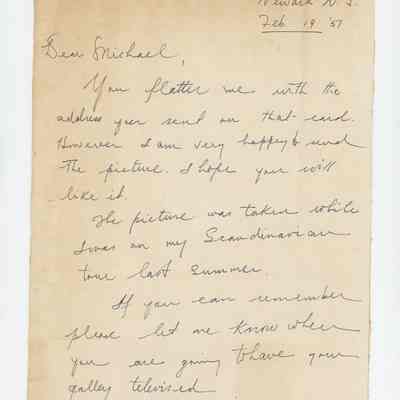 Newark N. J.
Feb 19 '57
Dear Michael,
You flatter me with the
address you send on that card.
However I am very happy to send
the picture. I hope you will
like it.
The picture was taken while
I was on my Scandinavian
tour last summer.
If you can remember
please let me know when
you are going to have your
galley televised